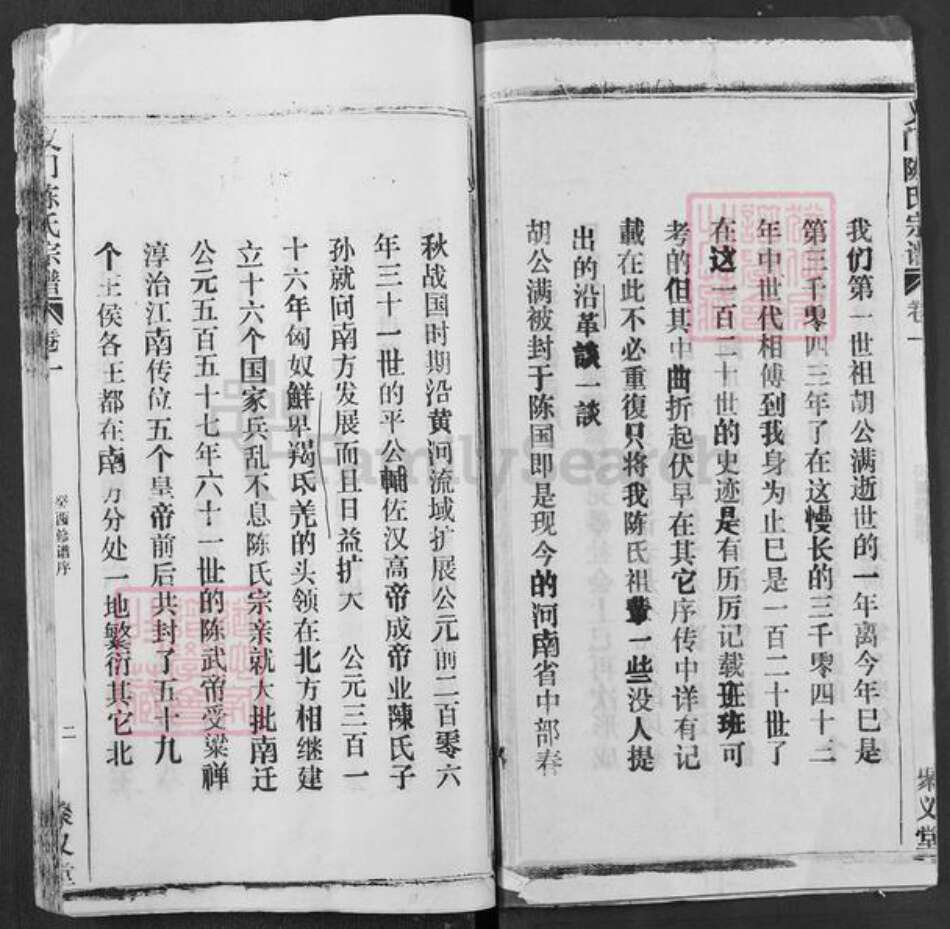 义门陈氏宗谱 卷一
聚义堂
我们第一世祖胡公满逝世的一年离今年巳是
第三千零四三年了在这慢长的三千零四十二
年中世代相傳到我身为止巳是一百二十世了
在这一百二十世的史迹是有历厉记载班班可
考的但其中曲折起伏早在其它序传中详有记
載在此不必重復只将我陈氏祖輩一些没人提
出的沿革談一談
胡公满被封于陈国即是现今的河南省中部春
秋战国时期沿黄河流域扩展公元前二百零六
年三十一世的平公輔佐汉高帝成帝业陳氏子
孙就向南方发展而且日益扩大 公元三百一
十六年匈奴鮮卑羯氐羌的头领在北方相继建
立十六个国家兵乱不息陈氏宗亲就大批南迁
公元五百五十七年六十一世的陈武帝受梁禅
淳治江南传位五个皇帝前后共封了五十九
个王侯各王都在南方分处一地繁衍其它北
义门陈氏宗譜 卷一
癸酉修谱序
二
聚义堂
FamilySearch